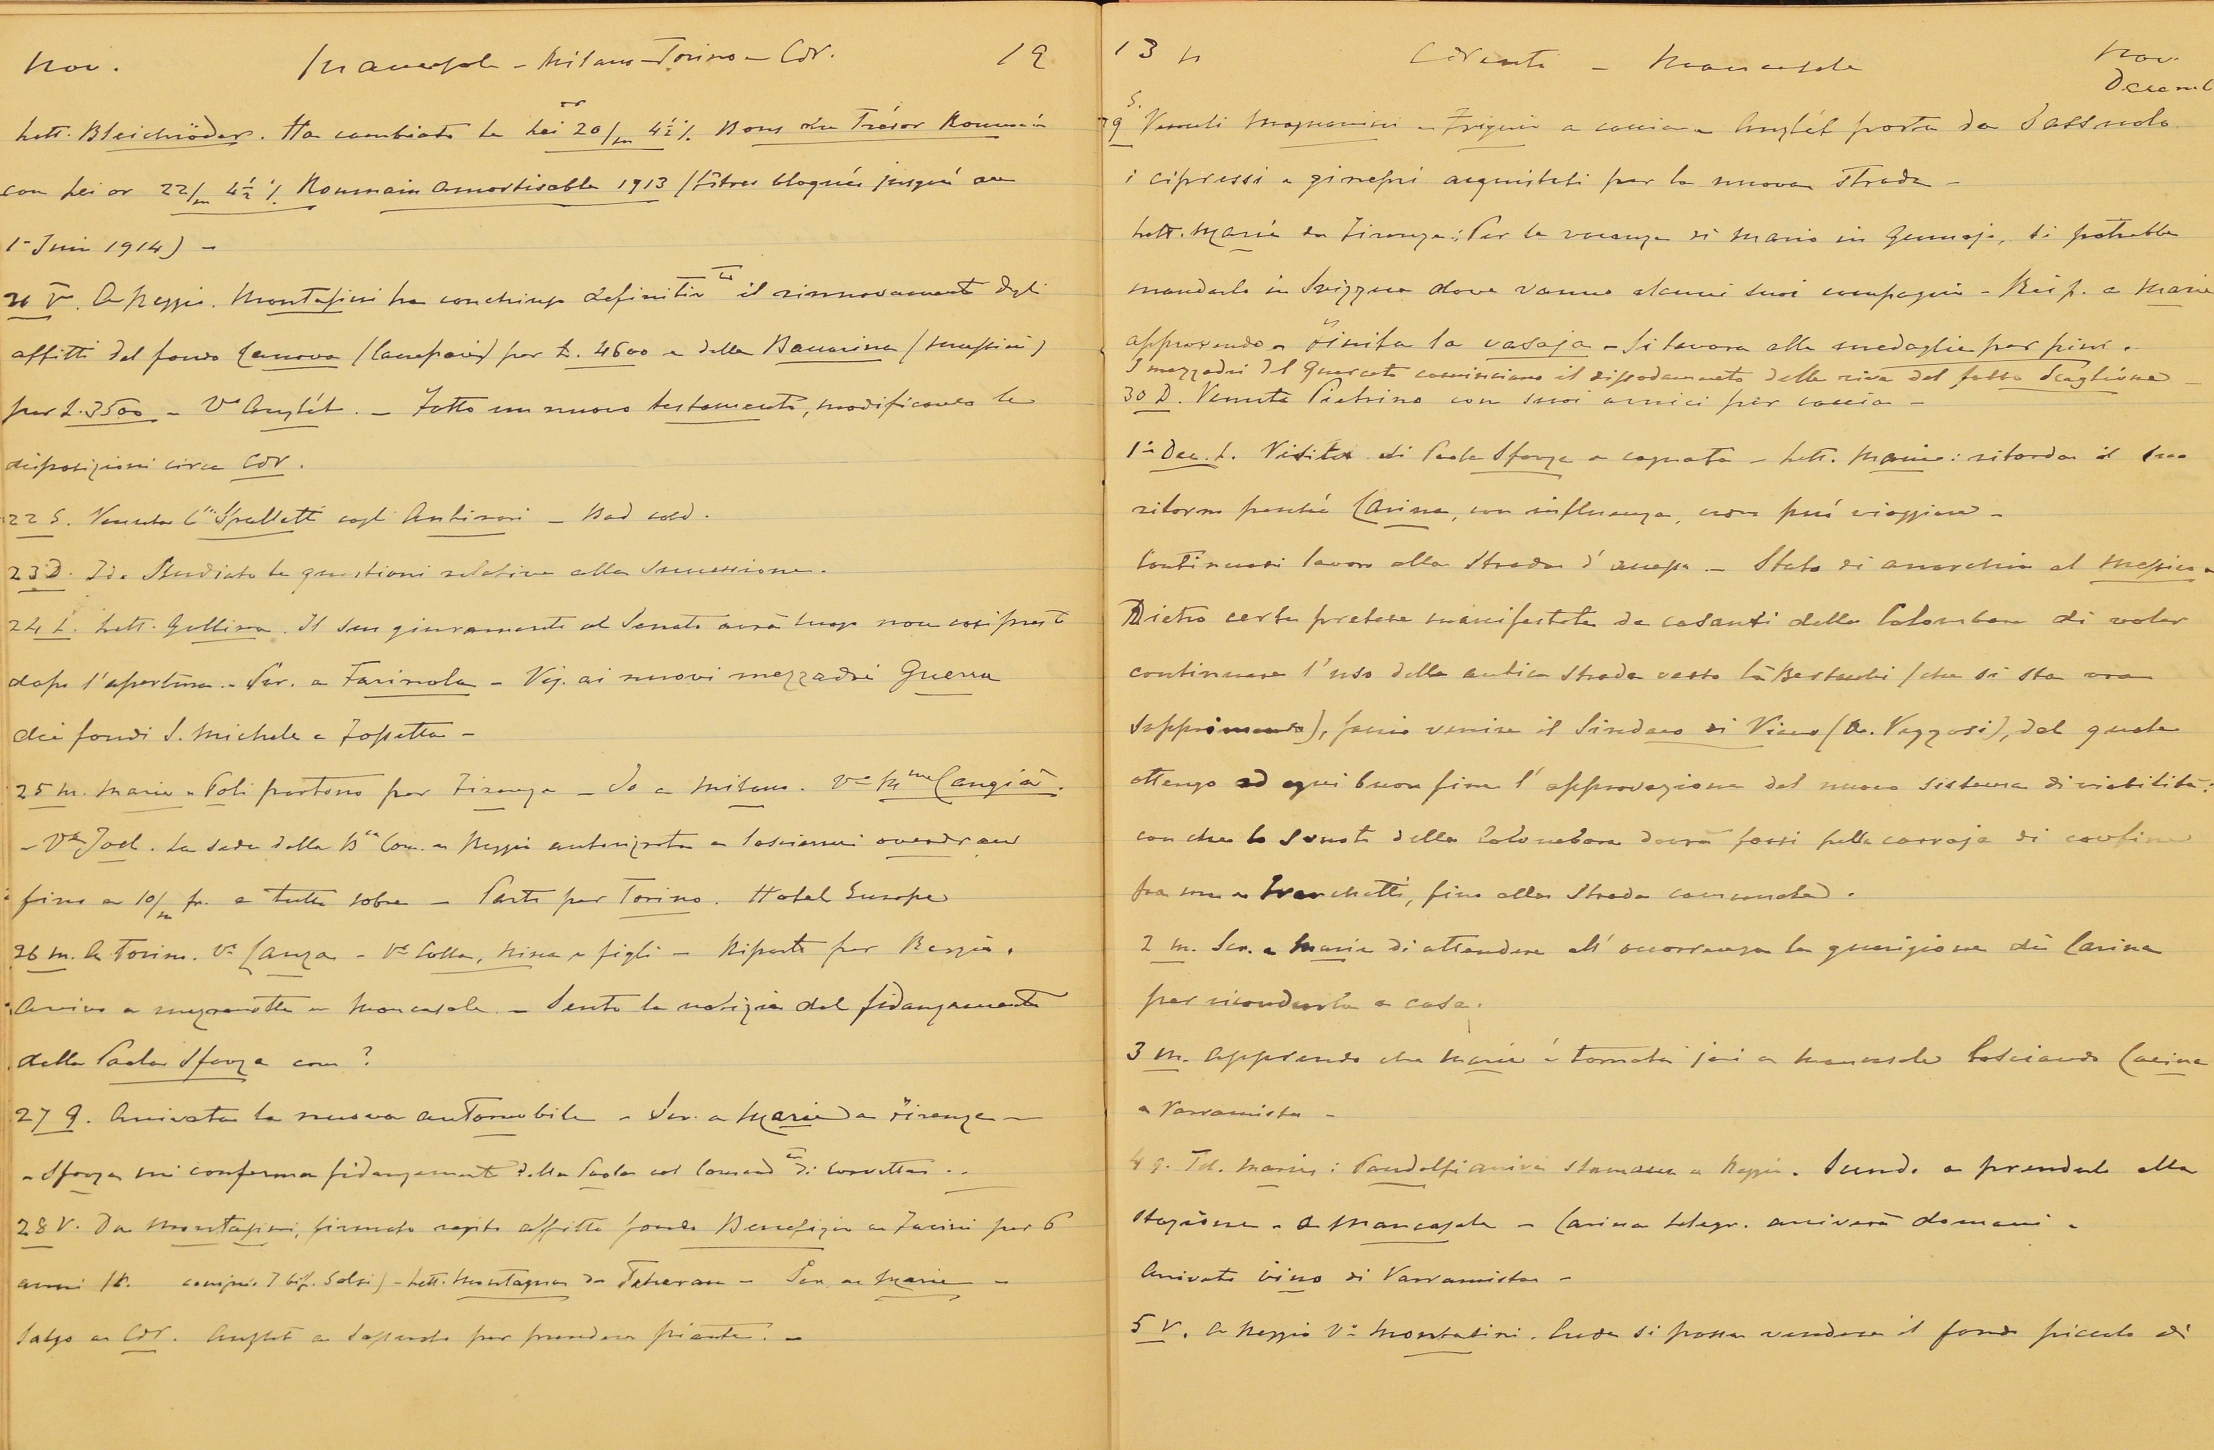 Nov. Mancasale - Milano - Torino - CdV. 19
Lett. Bleichröder. Ha cambiato le Lei or 20/m 4½% Bons du Trésor Roumain
con Lei or 22/m 4½% Roumain amortisable 1913 (titres bloqués jusqu'au
1 Juin 1914) -
21 V. A Reggio. Montasini ha conchiuso definitivte il rinnovamento degli
affitti del fondo Canova per L. 4600 e della
per L. 3500 - Va Anglét. - Fatto un nuovo testamento, modificando le
disposizioni circa CdV.
22 S. Venuta Cssa Spalletti cogli Antinori - Bad cold.
23 D. Id. Studiato le questioni relative alla successione.
24 L. Lett. Gallina. Il suo giuramento al Senato avrà luogo non così presto
dopo l'apertura. - Scr. a Farinola - Vis. ai nuovi mezzadri Guerra
dei fondi S. Michele e Fossetta -
25 M. Marie e Poli partono per Firenze - Io a Milano. Va Mme Cangià.
- Va Joel. La sede della Bca Com. a Reggio autorizzata a lasciarmi overdraw
fino a 10/m fr. a tutto 8obre - Parto per Torino. Hotel Europe
26 M. A Torino. Va Lanza - Va Colla, Nina e figli - Riparto per Reggio.
Arrivo a mezzanotte a Mancasale. - Sento la notizia del fidanzamento
della Paola Sforza con ?
27 G. Arrivata la nuova automobile - Scr. a Marie a Firenze -
- Sforza mi conferma fidanzamento della Paola col Comandte di corvetta ..
28 V. Da Montasini, firmato rogito affitto fondo Benefizio a Facini per 6
anni - Lett. Montagna da Teheran - Scr. a Marie -
Salgo a CdV. Anglét a Sassuolo per prendere piante. -
13 N CdVenti - Mancasale Nov.
Decemb
29 S. Venuti Magnanini e Frigieri a caccia - Anglét porta da Sassuolo
i cipressi e ginepri acquistati per la nuova strada -
Lett. Marie da Firenze: Per le vacanze di Mario in Gennajo, si potrebbe
mandarlo in Svizzera dove vanno alcuni suoi compagni - Risp. a Marie
approvando - Finita la vasaja - Si lavora alle medaglie per pini.
I mezzadri del Querceto cominciano il dissodamento della riva del fosso Scaglione -
30 D. Venuto Pietrino con suoi amici per caccia -
1° Dec. L. Visita di Paola Sforza e cognata - Lett. Marie: ritarda il suo
ritorno perché Carina, con influenza, non può viaggiare -
Continuasi lavoro alla strada d'accesso - Stato di anarchia al Messico -
Dietro certe pretese manifestate da casanti della Colombara di voler
continuare l'uso della antica strada verso Ca Bertacchi (che si sta ora
sopprimendo), faccio venire il Sindaco di Viano (A. Vezzosi), dal quale
ottengo ad ogni buon fine l'approvazione del nuovo sistema di viabilità:
con che lo svolto della Colombara dovrà farsi sulla carraja di confine
fra me e Franchetti, fino alla strada comunale.
2 M. Scr. a Marie di attendere all'occorrenza la guarigione di Carina
per ricondurla a casa.
3 M. Apprendo che Marie è tornata jeri a Mancasale lasciando Carina
a Varramista -
4 G. Tel. Marie: Pandolfi arriva stamane a Reggio. Scendo a prenderlo alla
stazione - A Mancasale - Carina telegr. arriverà domani -
Arrivato vino di Varramista -
5 V. A Reggio Va Montasini. Crede si possa vendere il fondo piccolo di